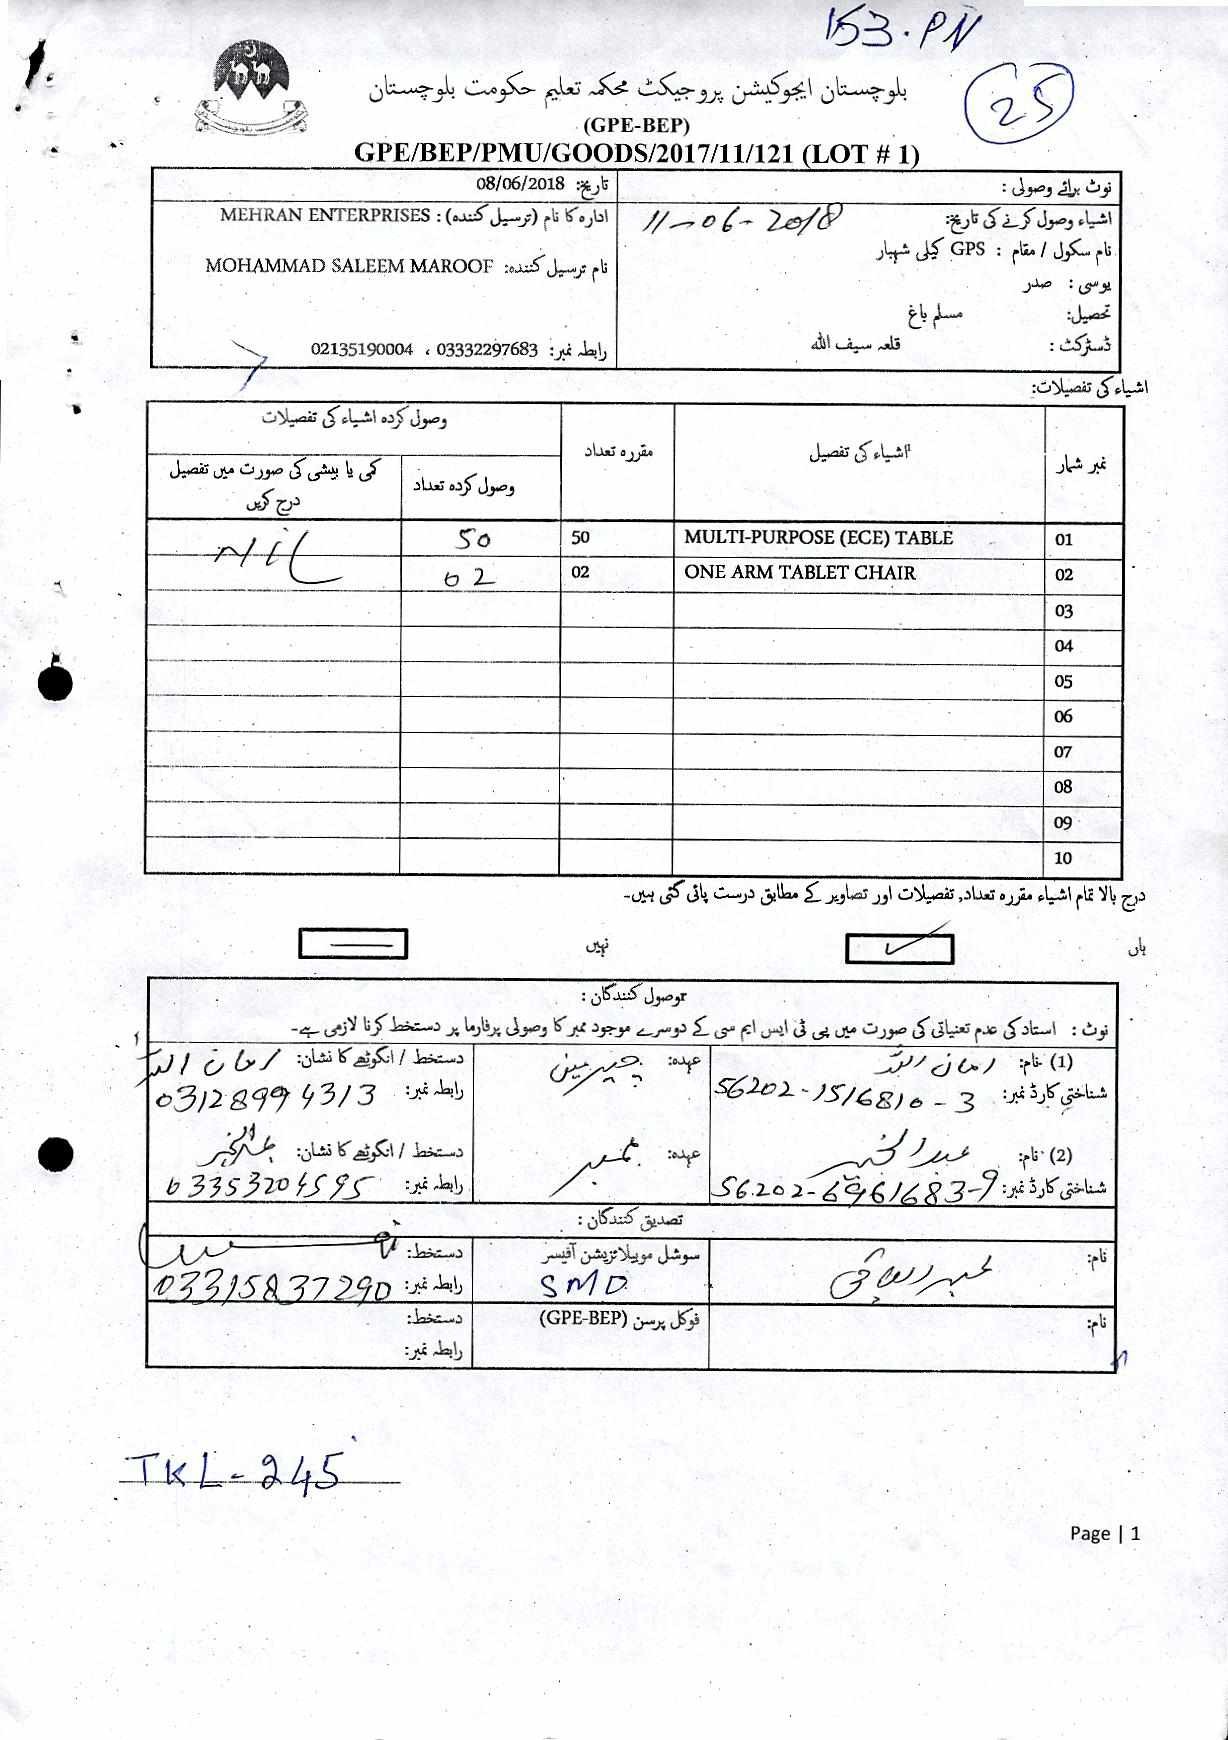 153.PN
25
بلوچستان ایجوکیشن پروجیکٹ محکمہ تعلیم حکومت بلوچستان
(GPE-BEP)
GPE/BEP/PMU/GOODS/2017/11/121 (LOT # 1)
نوٹ برائے وصولی :
اشیاء وصول کرنے کی تاریخ: 11-06-2018
نام سکول / مقام : GPS کیلی شہبار
یوسی : صدر
تحصیل: مسلم باغ
ڈسٹرکٹ : قلعہ سیف اللہ
تاریخ: 08/06/2018
ادارہ کا نام (ترسیل کنندہ) : MEHRAN ENTERPRISES
نام ترسیل کنندہ: MOHAMMAD SALEEM MAROOF
رابطہ نمبر: 03332297683 ، 02135190004
اشیاء کی تفصیلات:
نمبر شمار اشیاء کی تفصیل مقررہ تعداد وصول کردہ اشیاء کی تفصیلات
وصول کردہ تعداد کمی یا بیشی کی صورت میں تفصیل درج کریں
01 MULTI-PURPOSE (ECE) TABLE 50 50 NIL
02 ONE ARM TABLET CHAIR 02 02
03
04
05
06
07
08
09
10
درج بالا تمام اشیاء مقررہ تعداد, تفصیلات اور تصاویر کے مطابق درست پائی گئی ہیں۔
ہاں ✓ نہیں —
وصول کنندگان :
نوٹ : استاد کی عدم تعنیاتی کی صورت میں پی ٹی ایس ایم سی کے دوسرے موجود ممبر کا وصولی پرفارما پر دستخط کرنا لازمی ہے۔
(1) نام: امان اللہ عہدہ: چیرمین دستخط / انگوٹھے کا نشان: امان اللہ
شناختی کارڈ نمبر: 56202-1516810-3 رابطہ نمبر: 03128994313
(2) نام: عبدالخیر عہدہ: ممبر دستخط / انگوٹھے کا نشان: عبدالخیر
شناختی کارڈ نمبر: 56202-6961683-9 رابطہ نمبر: 03353204595
تصدیق کنندگان :
نام: سوشل موبیلائزیشن آفیسر دستخط:
SMO رابطہ نمبر: 03315837290
نام: فوکل پرسن (GPE-BEP) دستخط:
رابطہ نمبر:
TKL-245
Page | 1